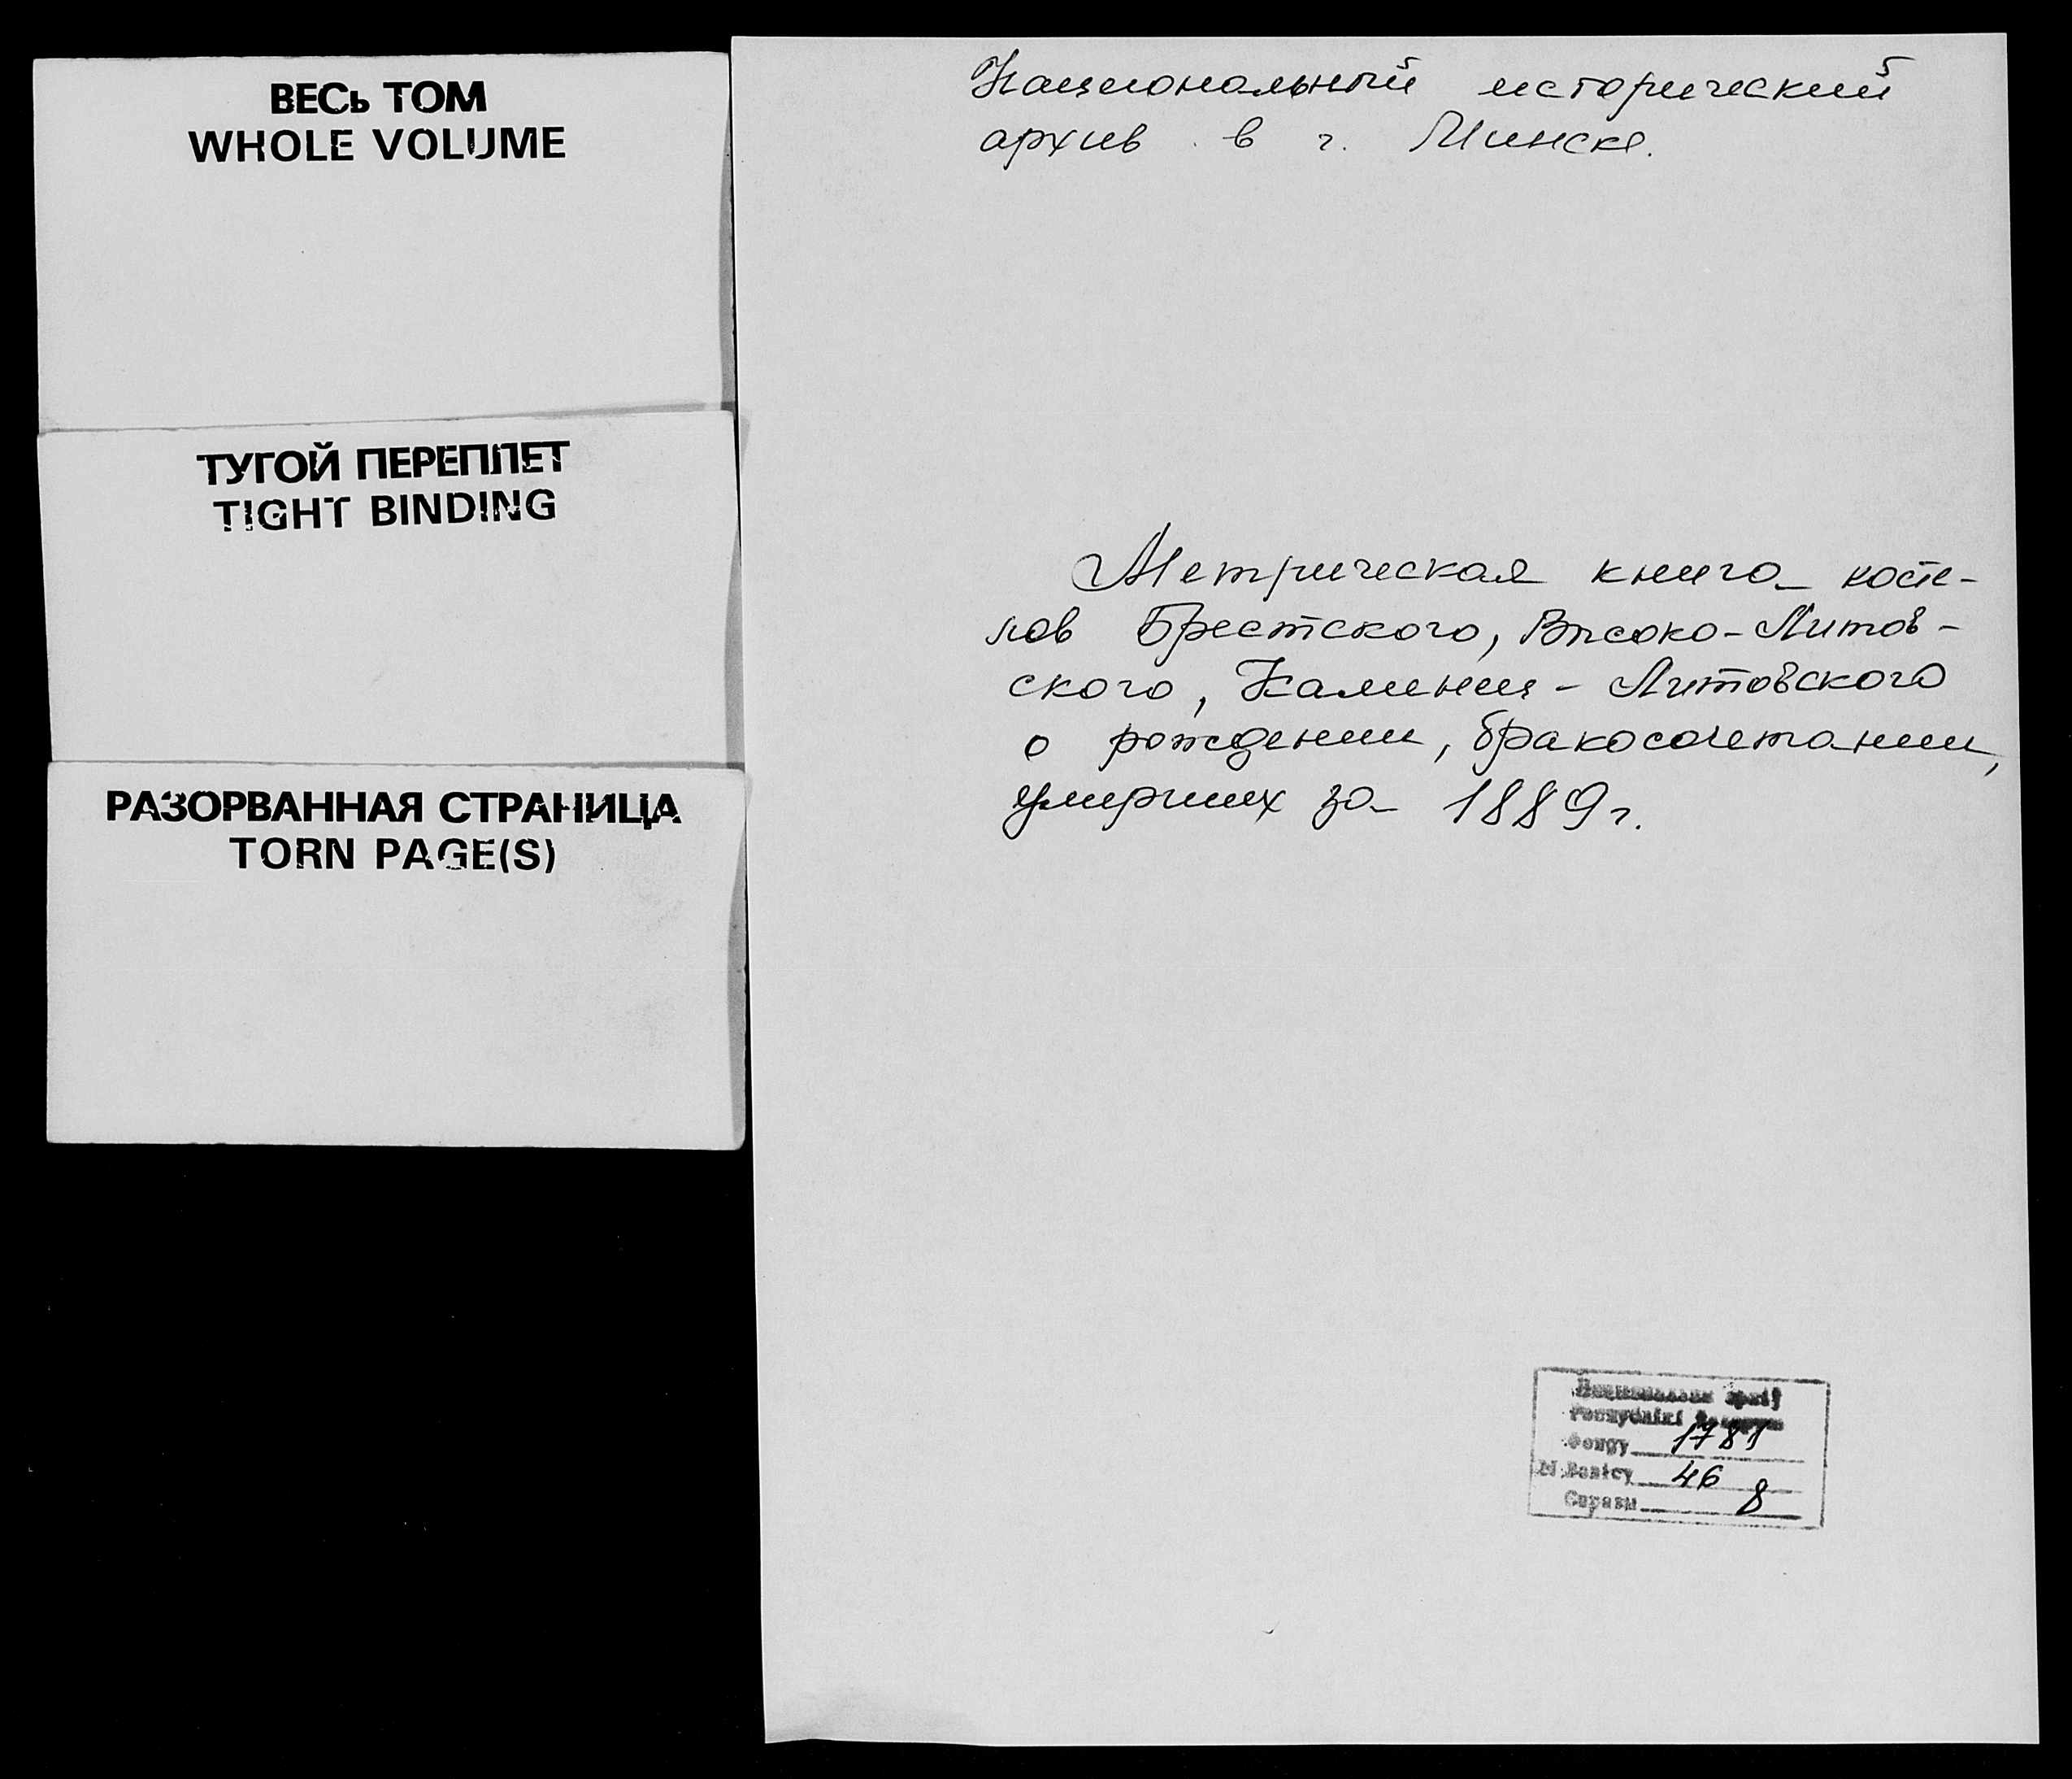 ВЕСЬ ТОМ
WHOLE VOLUME
ТУГОЙ ПЕРЕПЛЕТ
TIGHT BINDING
РАЗОРВАННАЯ СТРАНИЦА
TORN PAGE(S)
Национальный исторический
архив в г. Минске.
Метрическая книга косте-
лов Брестского, Высоко-Литов-
ского, Каменец-Литовского
о рождении, бракосочетании,
умерших за 1889 г.
Нацыянальны архіў
Рэспублікі Беларусь
Фонду 1781
№ Вопісу 46
Справы 8